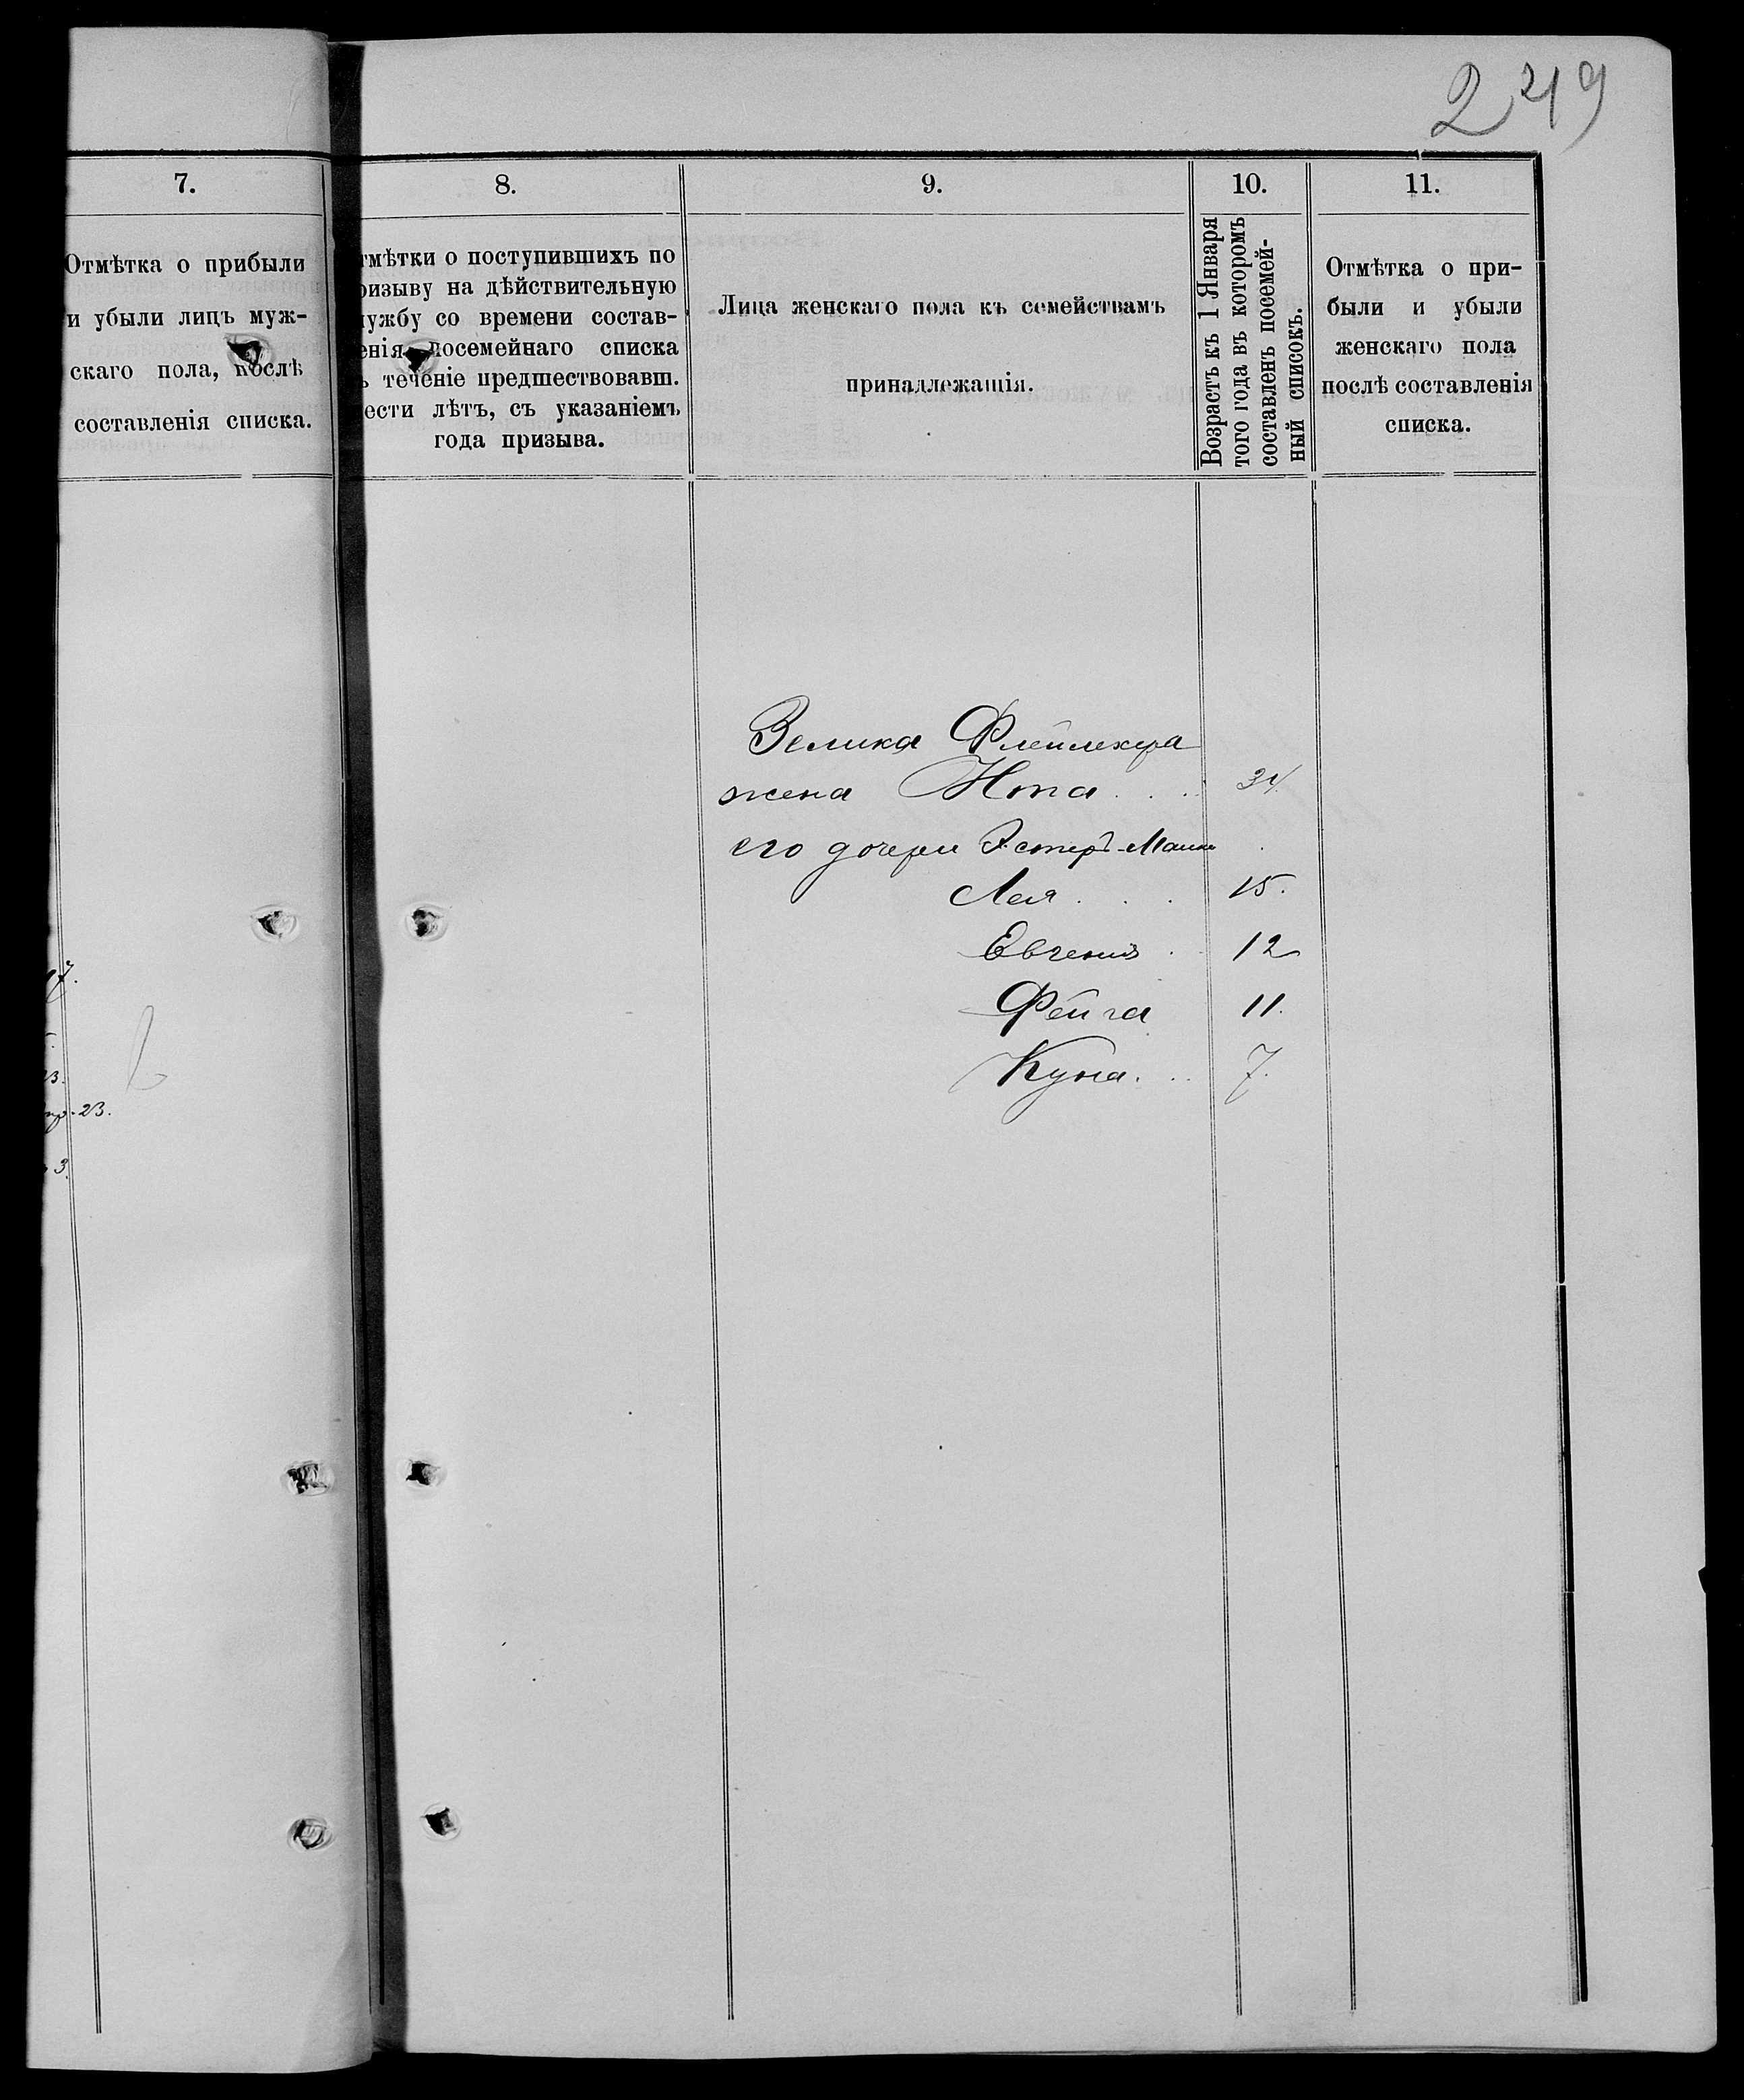 249
7.
Отмѣтка о прибыли
и убыли лицъ муж-
скаго пола, послѣ
составленія списка.
17.
3.
23.
3.
8.
тмѣтки о поступившихъ по
ризыву на дѣйствительную
ужбу со времени состав-
енія посемейнаго списка
ъ теченіе предшествовавш.
ести лѣтъ, съ указаніемъ
года призыва.
9.
Лица женскаго пола къ семействамъ
принадлежащія.
10.
Возрастъ къ 1 Января
того года въ которомъ
составленъ посемей-
ный списокъ.
11.
Отмѣтка о при-
были и убыли
женскаго пола
послѣ составленія
списка.
Зелика
жена Ита . . . 34
его дочери Эстеръ-
Лея . . . 15.
Евгенія . 12
Фейга 11.
Куна. . . 7.